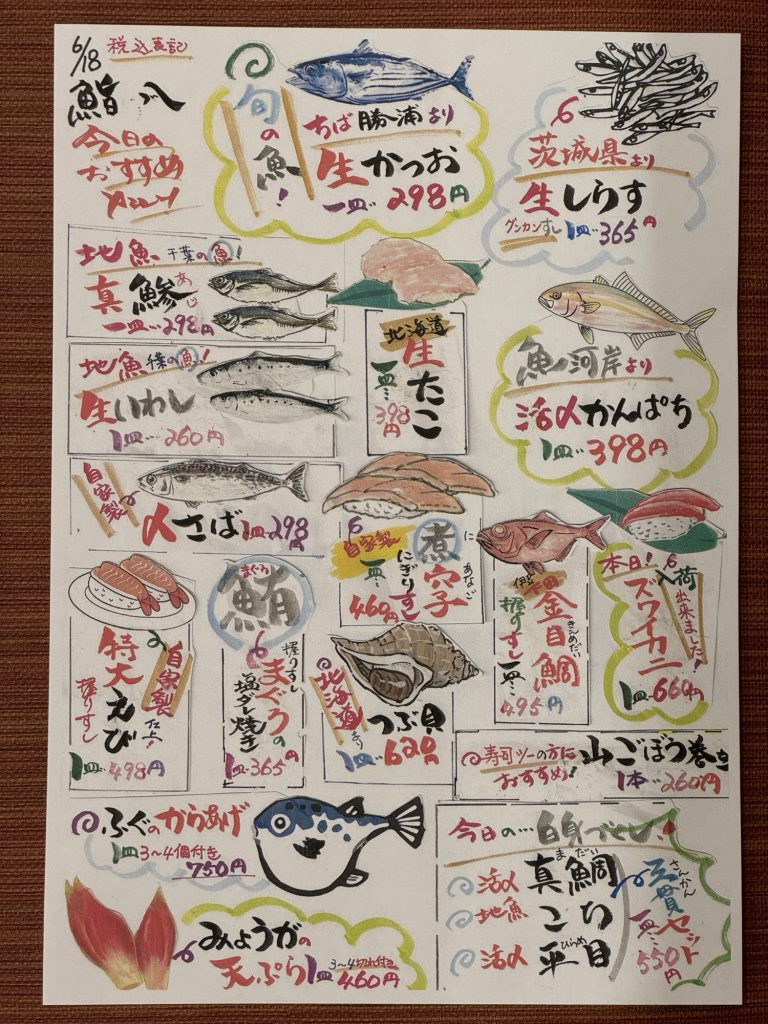 6/18 税込表記
鮨 八
今日の
おすすめ
旬の魚!
ちば勝浦より
生かつお
一皿…298円
茨城県より
生しらす
グンカンすし 1皿…365円
地魚 千葉の魚!
あじ
真鯵
一皿…298円
北海道
生たこ
一皿…398円
魚河岸より
活〆かんぱち
1皿…398円
地魚 千葉の魚!
生いわし
1皿…260円
自家製
〆さば 1皿…298円
自家製
にぎりすし
一皿…460円
煮穴子
に あなご
伊豆下田
金目鯛
きんめだい
握りすし 一皿…495円
本日!入荷出来ました!
ズワイカニ
1皿…660円
自家製仕上!
特大えび
握りすし
1皿…498円
まぐろ
鮪
握りすし
まぐろの
塩ダレ焼き
1皿…365円
北海道より
つぶ貝
1皿…620円
寿司ツーの方に
おすすめ!
山ごぼう巻き
1本…260円
ふぐのからあげ
1皿3〜4個付き
750円
みょうがの
天ぷら 1皿 3〜4切れ付き
460円
今日の…白身づくし!
まだい
活〆 真鯛
地魚 こち
ひらめ
活〆 平目
さんかん
三貫セット
一皿…550円